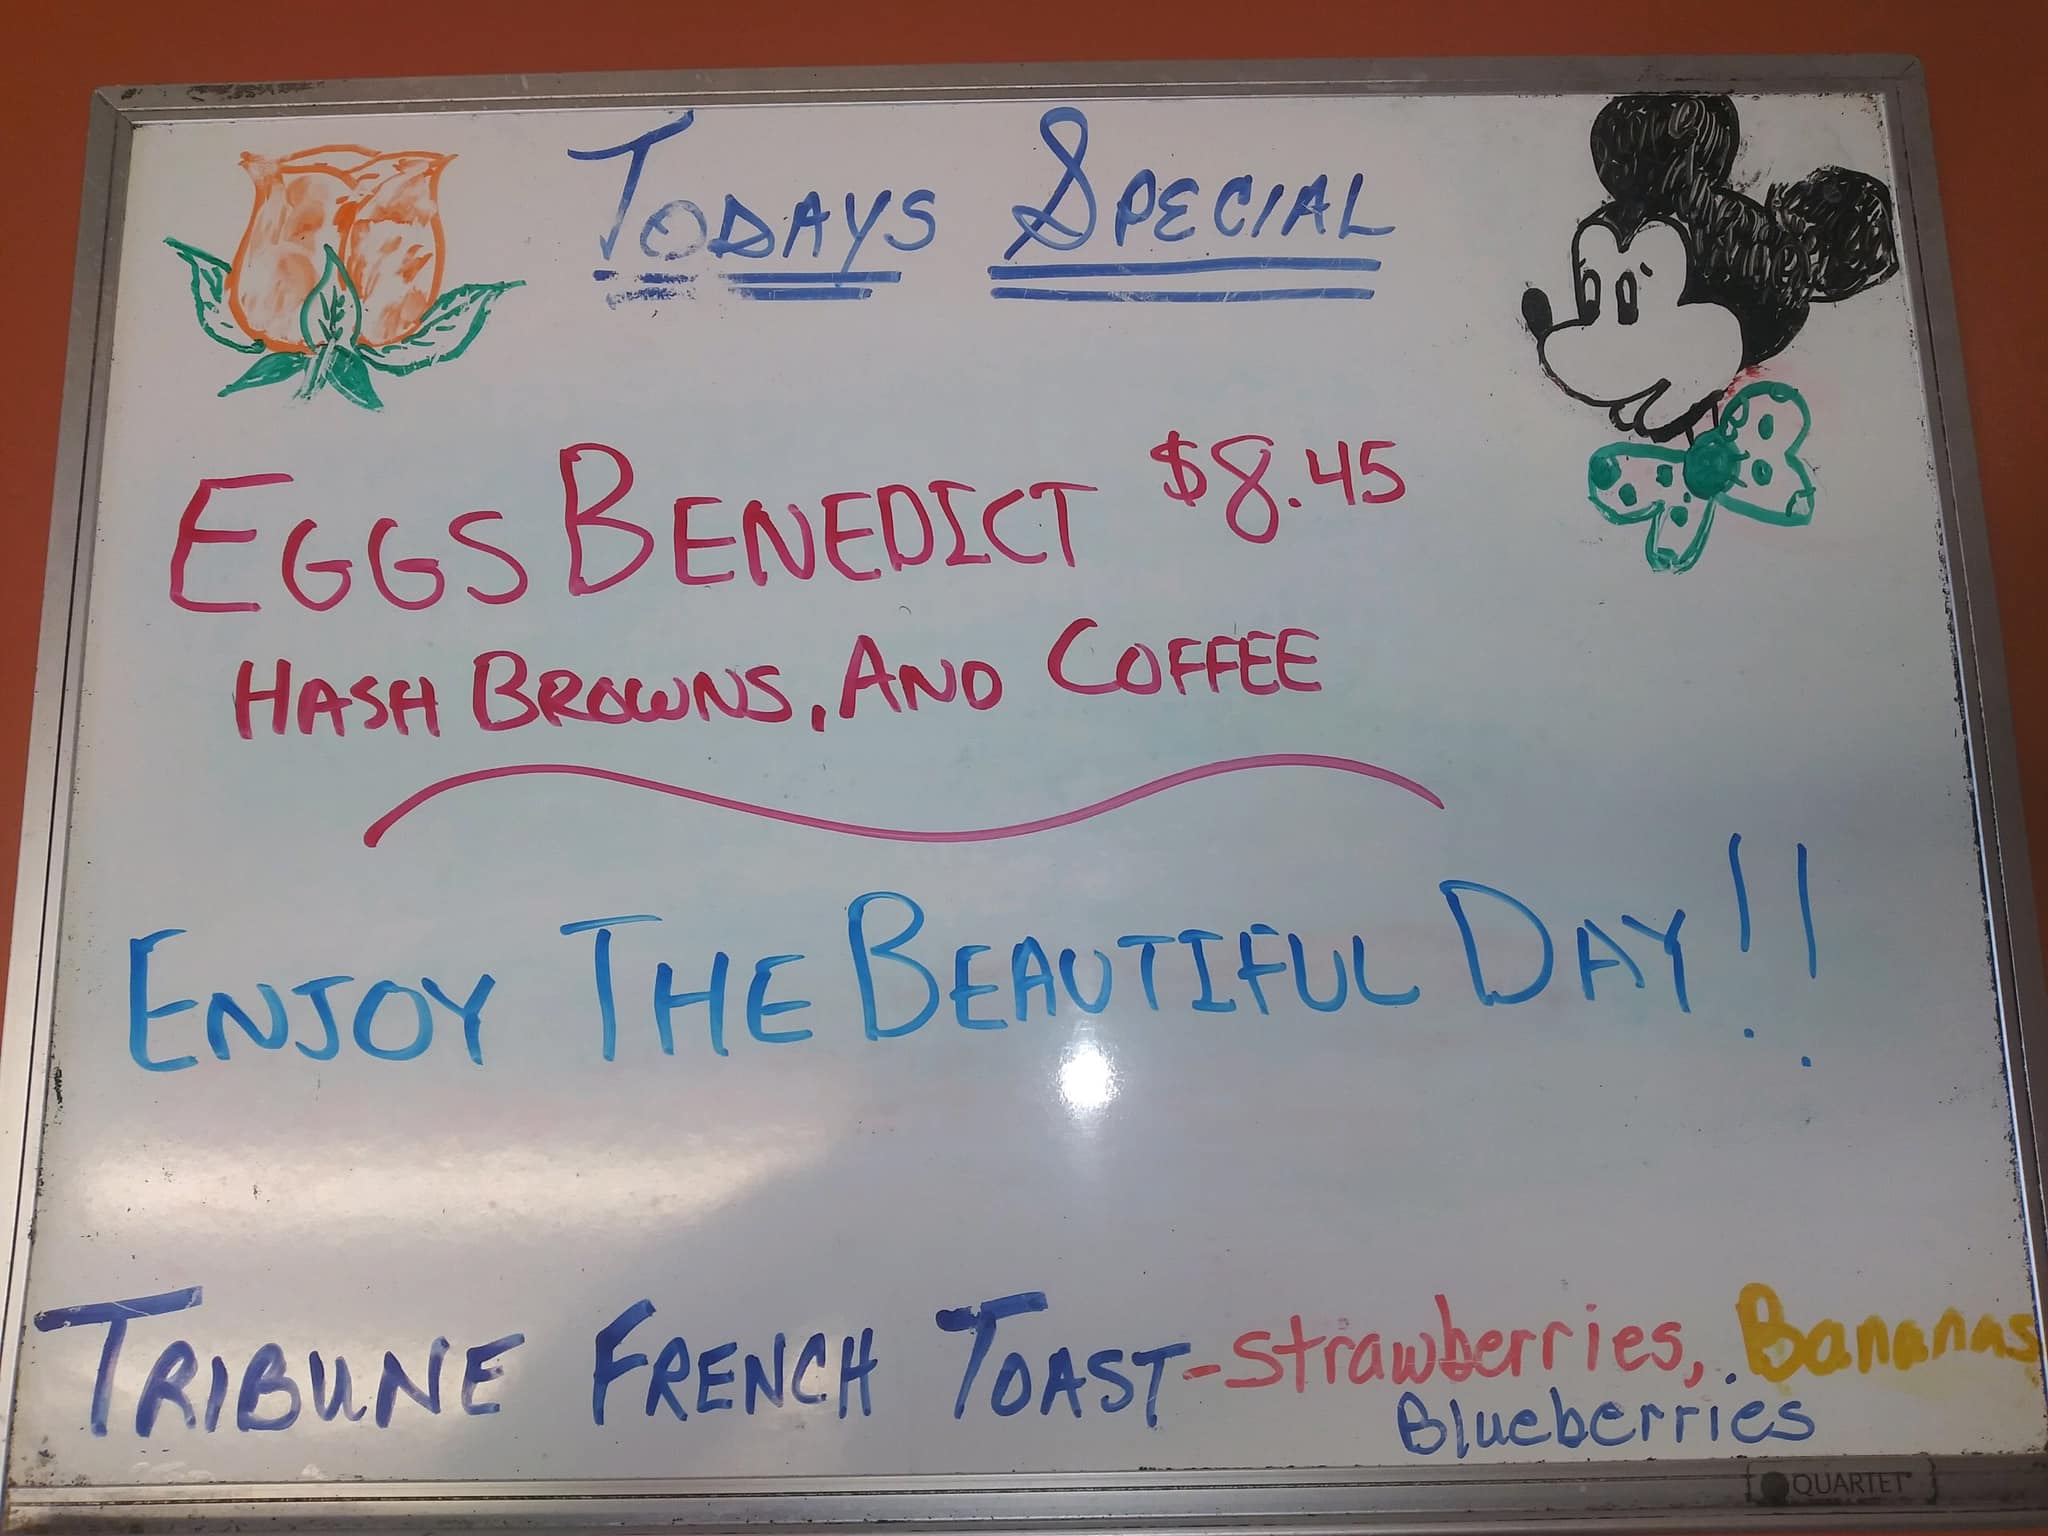 TODAYS SPECIAL
EGGS BENEDICT $8.45
HASH BROWNS, AND COFFEE
ENJOY THE BEAUTIFUL DAY!!
TRIBUNE FRENCH TOAST-strawberries, Bananas
Blueberries
QUARTET